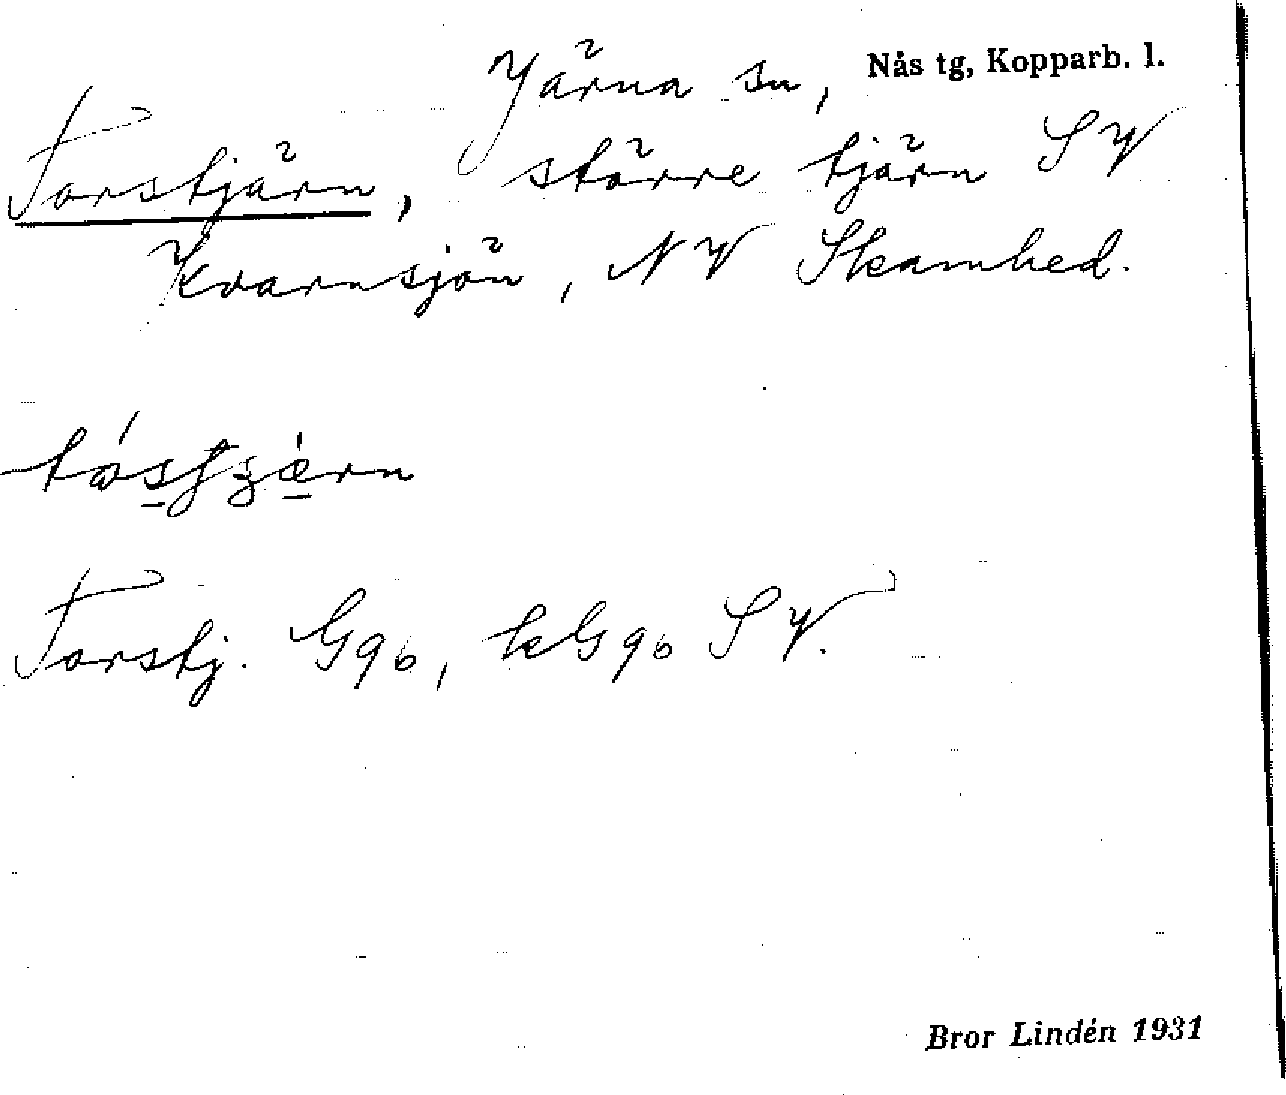 Järna sn, Nås tg, Kopparb. l.
Torstjärn, större tjärn SV
Kvarnsjön, NV Skamhed.
Torstj. G96, kG96 SV.
Bror Lindén 1931